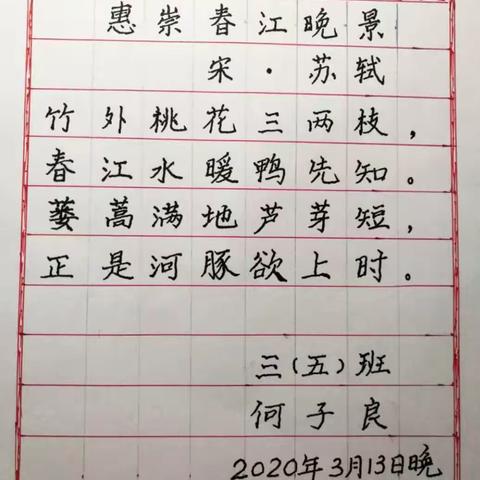 惠崇春江晚景
宋·苏轼
竹外桃花三两枝，
春江水暖鸭先知。
蒌蒿满地芦芽短，
正是河豚欲上时。
三（五）班
何子良
2020年3月13日晚